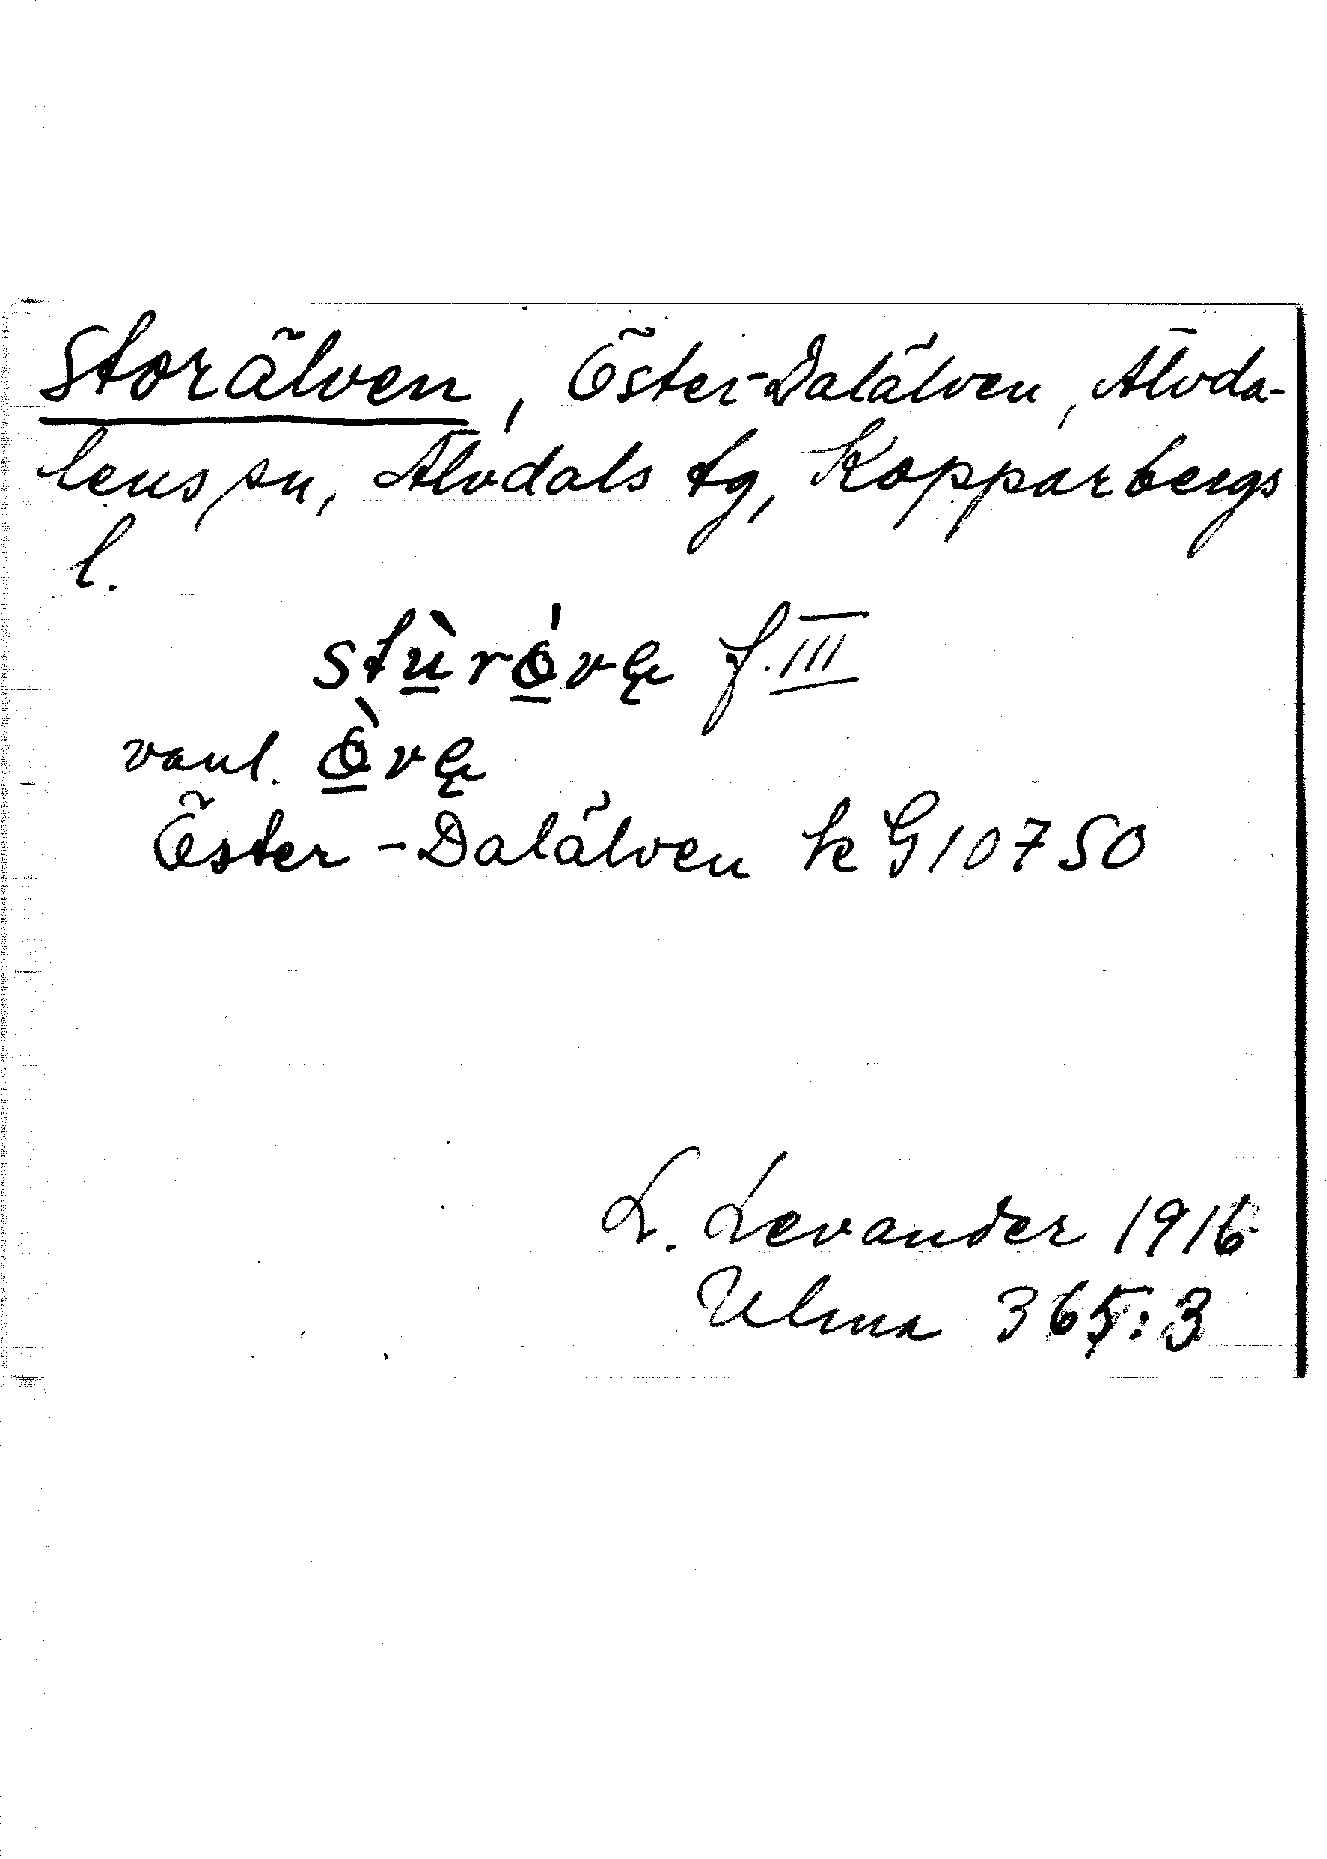 Storälven, Öster-Dalälven, Älvda-
lens sn, Älvdals tg, Kopparbergs
l.
f. III
vanl.
Öster-Dalälven k G 10750
L. Levander 1916
Ulma 365:3